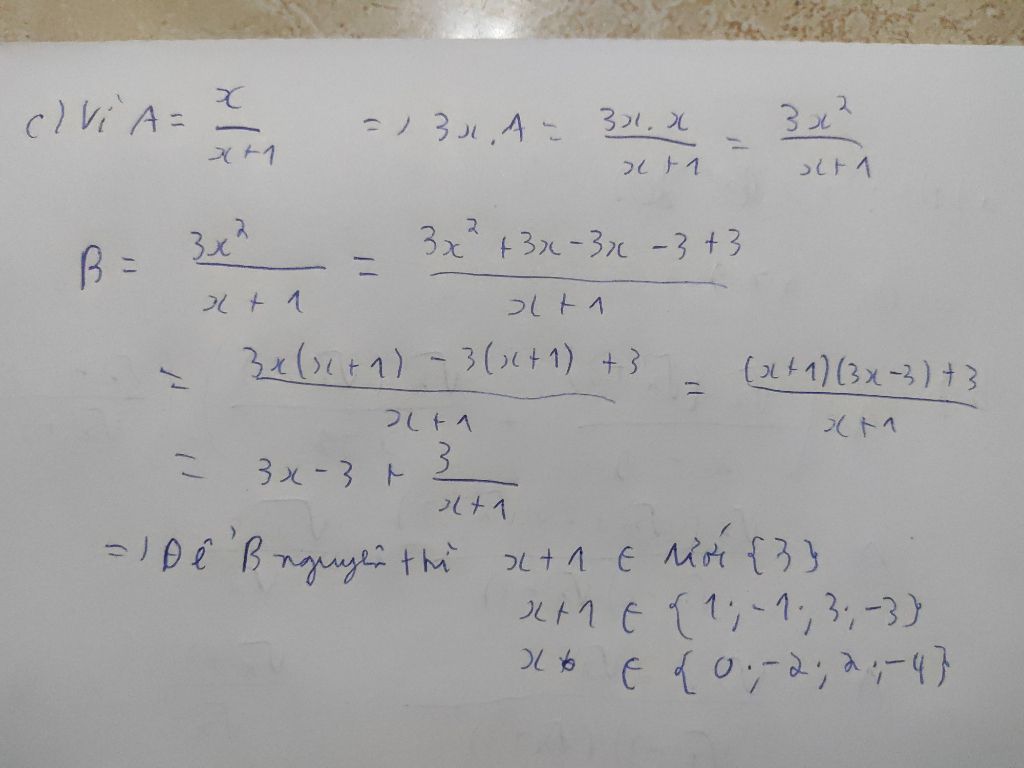 c) Vì A = x/(x+1) => 3x.A = 3x.x/(x+1) = 3x²/(x+1)
B = 3x²/(x+1) = (3x² +3x-3x -3+3)/(x+1)
= (3x(x+1) - 3(x+1) +3)/(x+1) = ((x+1)(3x-3)+3)/(x+1)
= 3x-3 + 3/(x+1)
=> Để B nguyên thì x+1 ∈ Ước {3}
x+1 ∈ {1;-1;3;-3}
x ∈ {0;-2;2;-4}